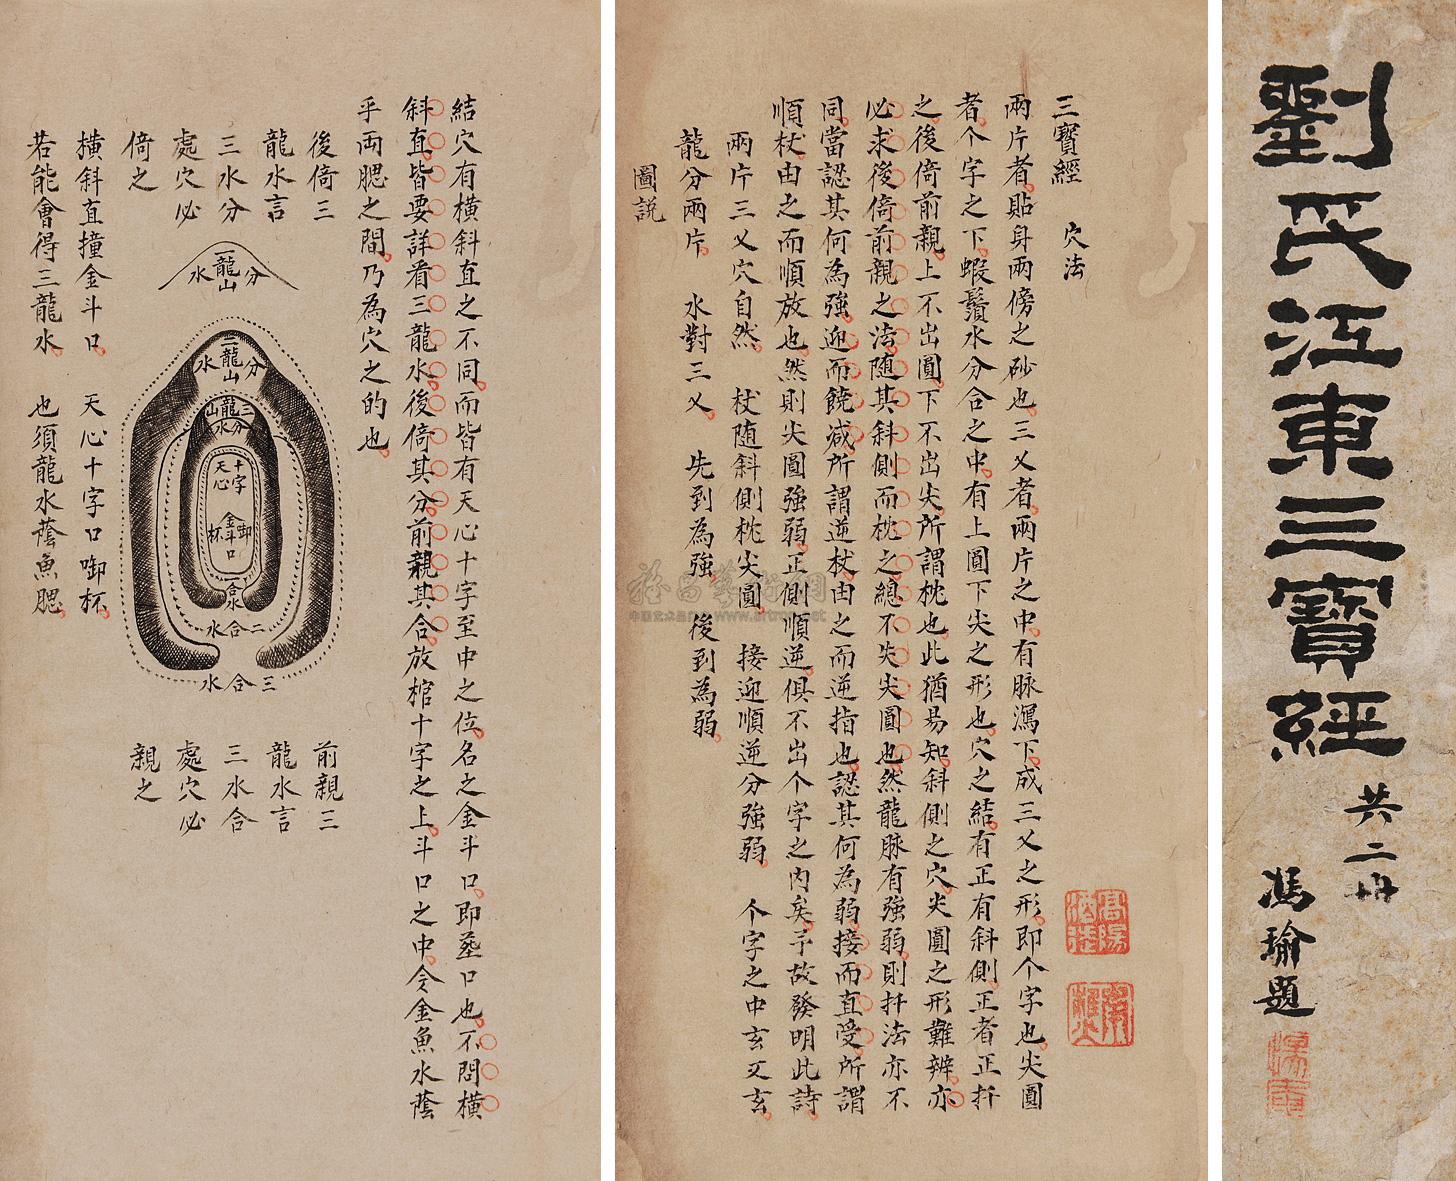 劉氏江東三寶經
共二冊
馮瑜題
三寶經 穴法
兩片者貼身兩傍之砂也三乂者兩片之中有脉瀉下成三乂之形即个字也尖圓
者个字之下蝦鬚水分合之中有上圓下尖之形也穴之結有正有斜側正者正扦
之後倚前親上不出圓下不出尖所謂枕也此猶易知斜側之穴尖圓之形難辨亦
必求後倚前親之法随其斜側而枕之總不失尖圓也然龍脉有強弱則扦法亦不
同當認其何為強迎而饒減所謂逆杖由之而逆指也認其何為弱接而直受所謂
順杖由之而順放也然則尖圓強弱正側順逆俱不出个字之内矣予故發明此詩
兩片三乂穴自然 杖随斜側枕尖圓 接迎順逆分強弱 个字之中玄又玄
龍分兩片 水對三乂 先到為強 後到為弱
圖説
結穴有橫斜直之不同而皆有天心十字至中之位名之金斗口即葬口也不問橫
斜直皆要詳看三龍水後倚其分前親其合放棺十字之上斗口之中令金魚水蔭
乎両腮之間乃為穴之的也
後倚三
龍水言
三水分
處穴必
倚之
一龍山分水
二龍山分水
三龍山分水
十字天心
金斗口
啣杯
一合水
二合水
三合水
前親三
龍水言
三水合
處穴必
親之
橫斜直撞金斗口 天心十字口啣杯
若能會得三龍水 也須龍水蔭魚腮